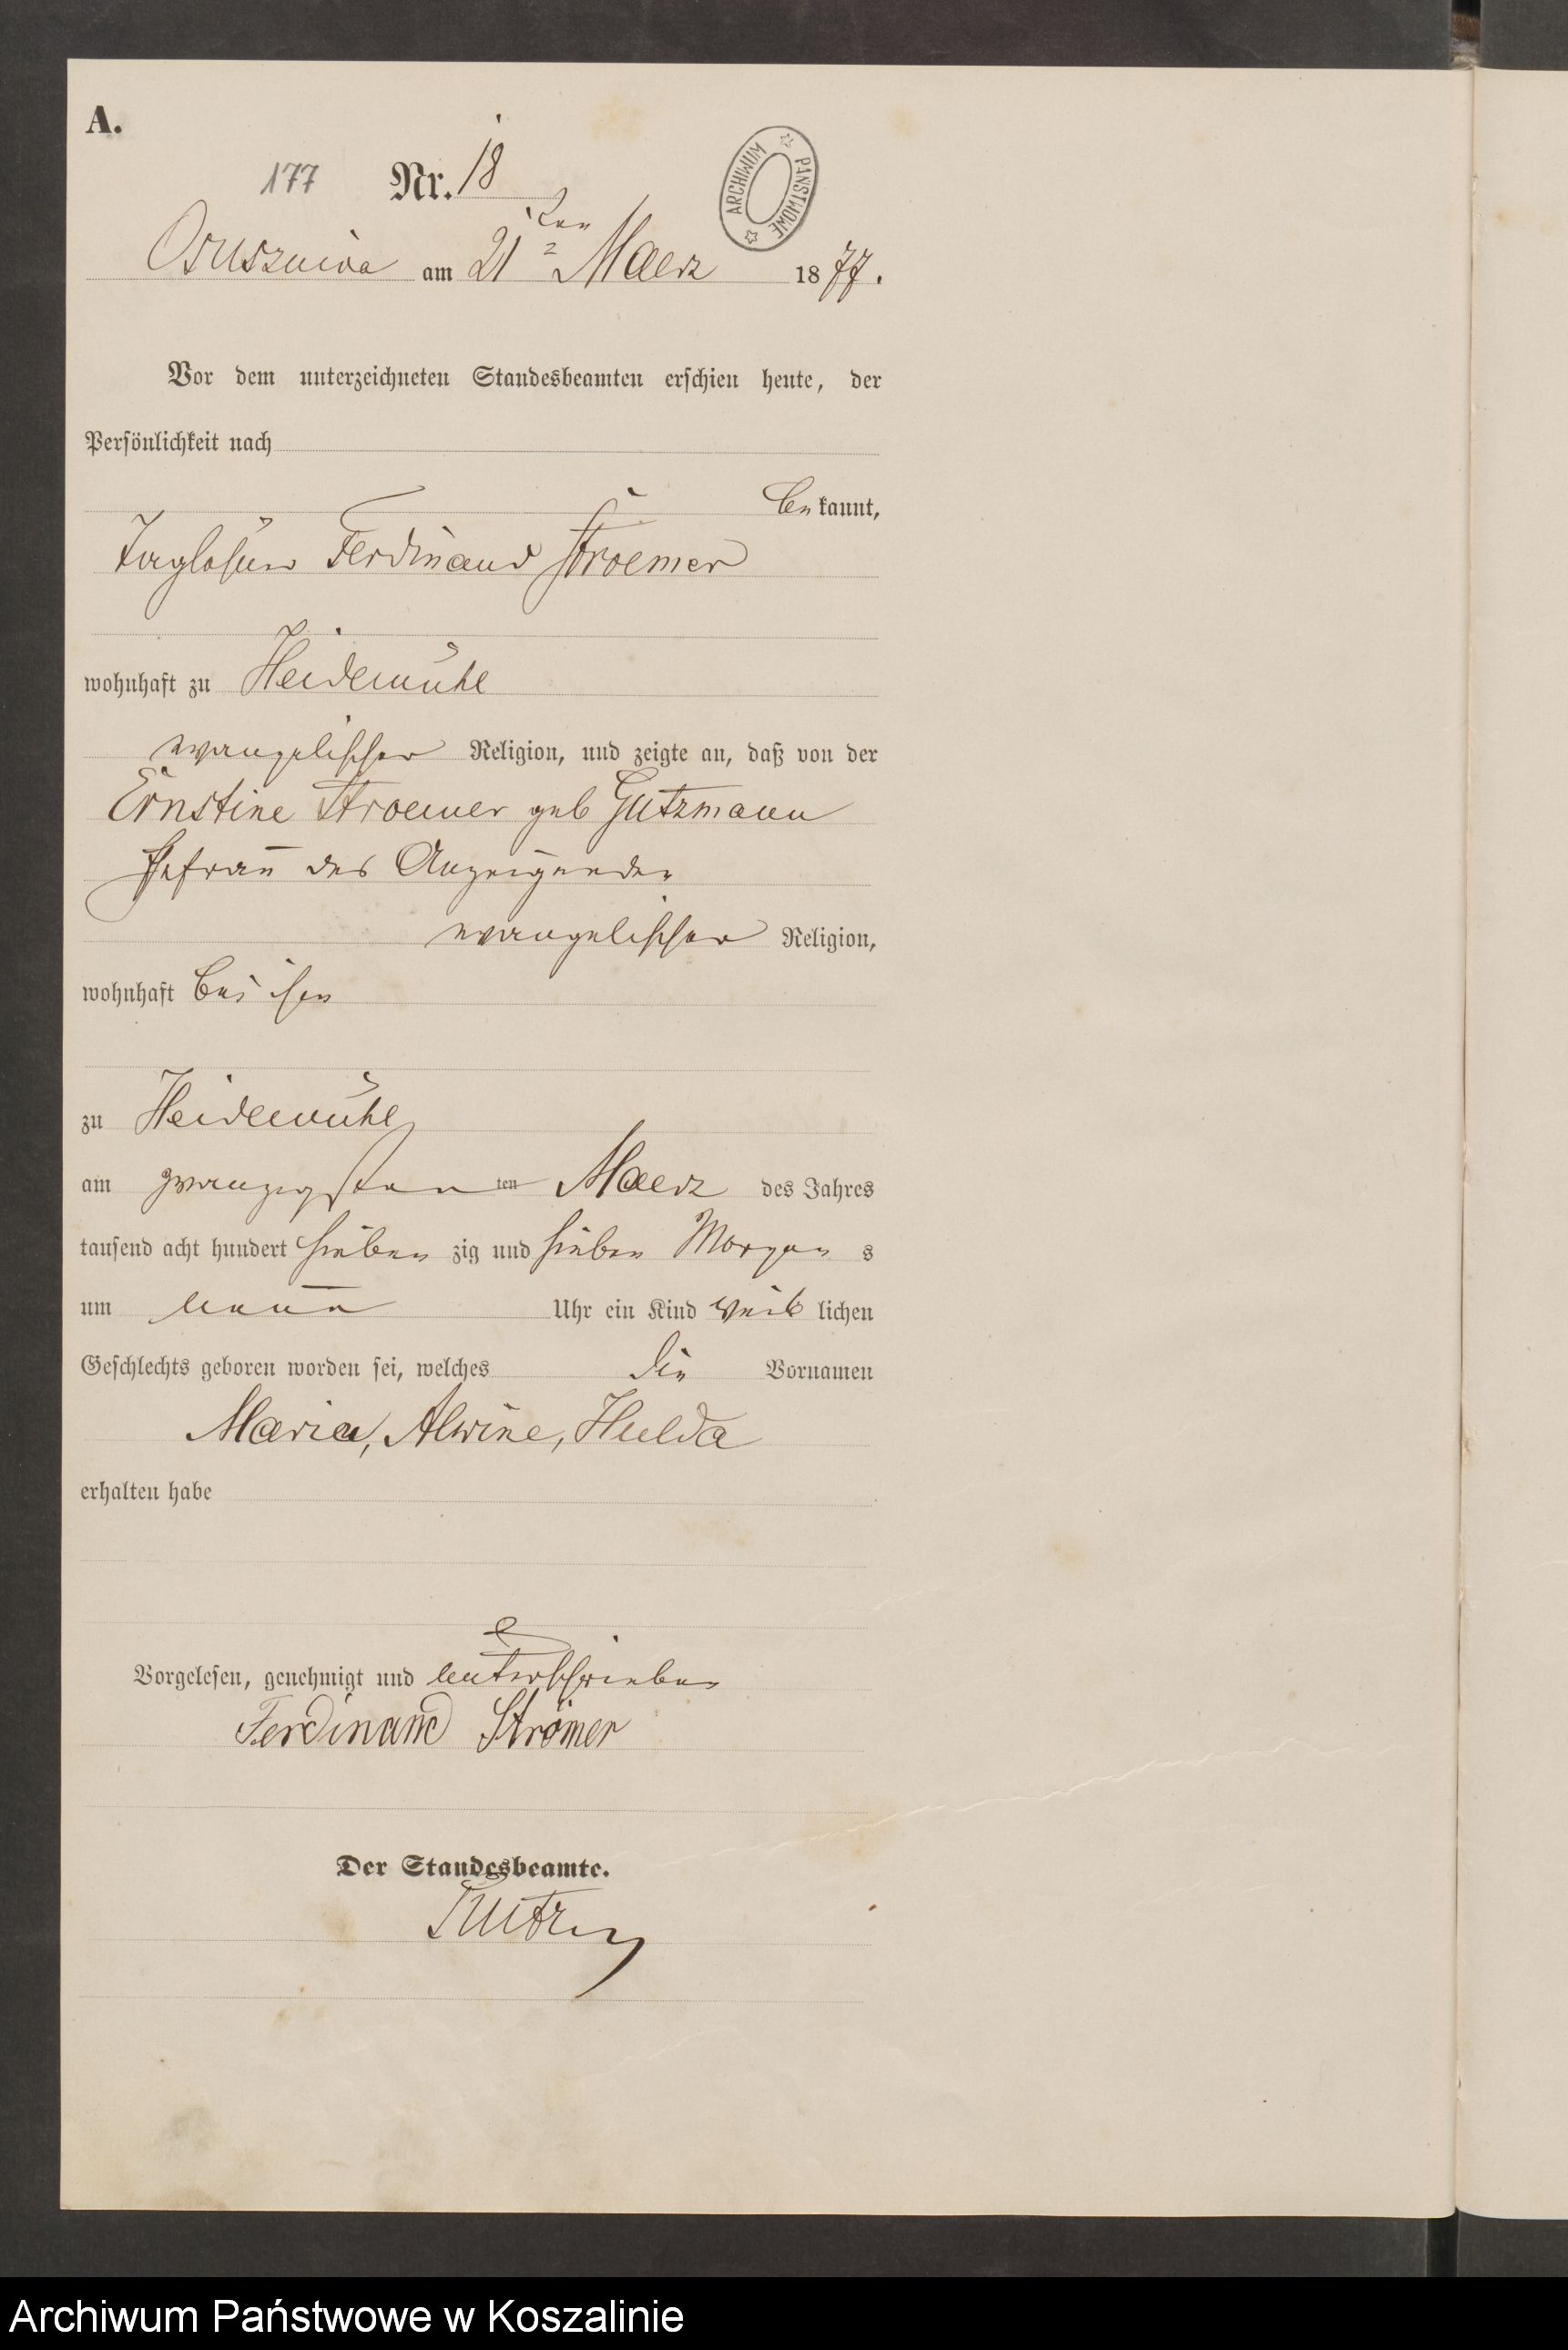 A.
177 Nr. 18
ARCHIWUM PAŃSTWOWE
Osuszniça am 21ten Maerz 1877.
Vor dem unterzeichneten Standesbeamten erschien heute, der
Persönlichkeit nach
bekannt,
Taglöhner Ferdinand Stroemer
wohnhaft zu Heidemühl
evangelischer Religion, und zeigte an, daß von der
Ernstine Stroemer geb Gutzmann
Ehefrau des Anzeigenden
evangelischer Religion,
wohnhaft bei ihm
zu Heidemühl
am zwanzigsten ten Maerz des Jahres
tausend acht hundert sieben zig und sieben Morgen s
um neun Uhr ein Kind weib lichen
Geschlechts geboren worden sei, welches die Vornamen
Maria, Alwine, Hulda
erhalten habe
Vorgelesen, genehmigt und unterschrieben
Ferdinand Strömer
Der Standesbeamte.
Archiwum Państwowe w Koszalinie